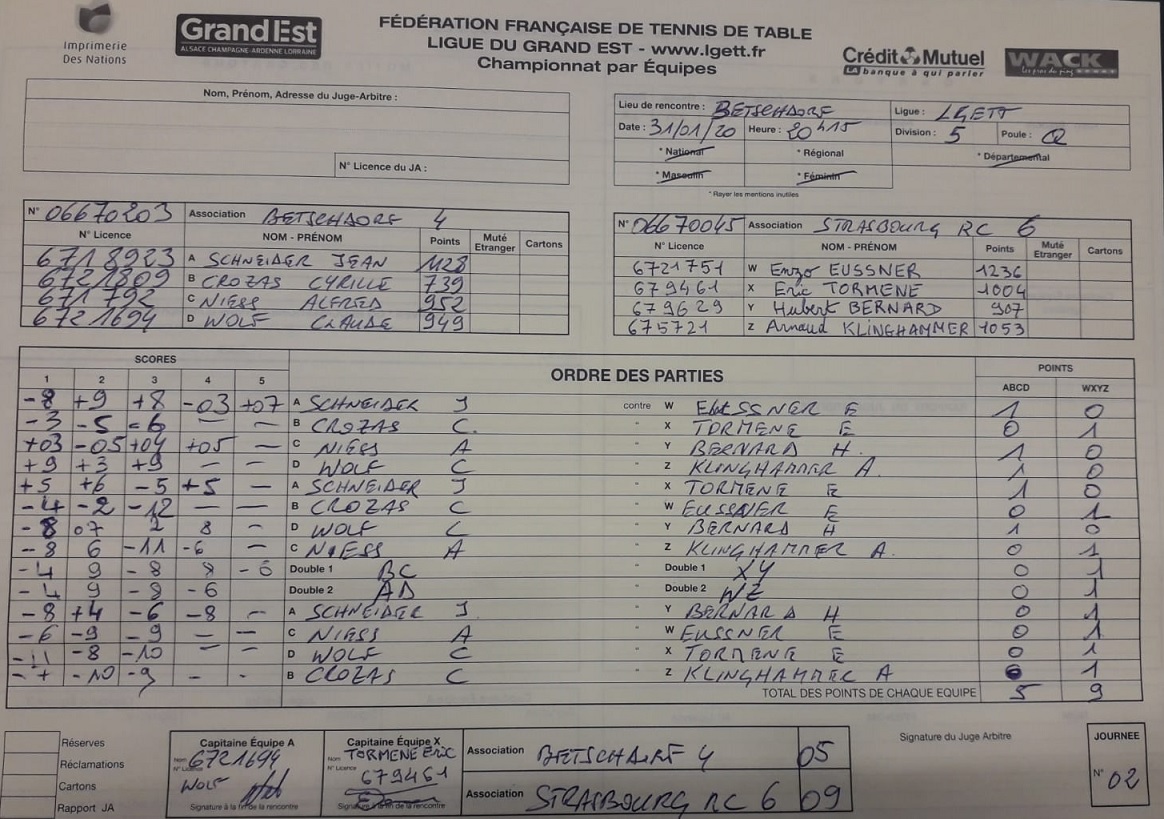 Imprimerie
Des Nations
Grand Est
ALSACE CHAMPAGNE-ARDENNE LORRAINE
FÉDÉRATION FRANÇAISE DE TENNIS DE TABLE
LIGUE DU GRAND EST - www.lgett.fr
Championnat par Équipes
Crédit Mutuel
LA banque à qui parler
WACK
Nom, Prénom, Adresse du Juge-Arbitre :
N° Licence du JA :
Lieu de rencontre : BETSCHDORF Ligue : LGETT
Date : 31/01/20 Heure : 20h15 Division : 5 Poule : Q
* National * Régional * Départemental
* Masculin * Féminin
* Rayer les mentions inutiles
N° 06670203 Association BETSCHDORF 4
N° Licence NOM - PRÉNOM Points Muté Etranger Cartons
6718923 A SCHNEIDER JEAN 1128
6721809 B CROZAS CYRILLE 739
671792 C NIESS ALFRED 952
6721694 D WOLF CLAUDE 949
N° 06670045 Association STRASBOURG RC 6
N° Licence NOM - PRÉNOM Points Muté Etranger Cartons
6721751 W Enzo EUSSNER 1236
679461 X Eric TORMENE 1004
679629 Y Hubert BERNARD 907
675721 Z Arnaud KLINGHAMMER 1053
SCORES ORDRE DES PARTIES POINTS
1 2 3 4 5 ABCD WXYZ
-8 +9 +8 -03 +07 A SCHNEIDER J contre W EUSSNER E 1 0
-3 -5 -6 — — B CROZAS C. " X TORMENE E 0 1
+03 -05 +04 +05 — C NIESS A " Y BERNARD H. 1 0
+9 +3 +9 — — D WOLF C " Z KLINGHAMMER A. 1 0
+5 +6 -5 +5 — A SCHNEIDER J " X TORMENE E 1 0
-4 -2 -12 — — B CROZAS C " W EUSSNER E 0 1
-8 07 2 8 - D WOLF C " Y BERNARD H 1 0
-8 6 -11 -6 — C NIESS A " Z KLINGHAMMER A. 0 1
-4 9 -8 8 -6 Double 1 BC " Double 1 XY 0 1
-4 9 -8 -6 Double 2 AD " Double 2 WZ 0 1
-8 +4 -6 -8 - A SCHNEIDER J. " Y BERNARD H 0 1
-6 -9 -9 — — C NIESS A " W EUSSNER E 0 1
-11 -8 -10 — — D WOLF C " X TORMENE E 0 1
-10 -9 - - B CROZAS C " Z KLINGHAMMER A 0 1
TOTAL DES POINTS DE CHAQUE EQUIPE 5 9
Réserves
Réclamations
Cartons
Rapport JA
Capitaine Équipe A
Nom 6721694
N° Licence
WOLF
Signature à la fin de la rencontre
Capitaine Équipe X
Nom TORMENE Eric
N° Licence 679461
Signature à la fin de la rencontre
Association BETSCHDORF 4 05
Association STRASBOURG RC 6 09
Signature du Juge Arbitre
JOURNEE
N° 02